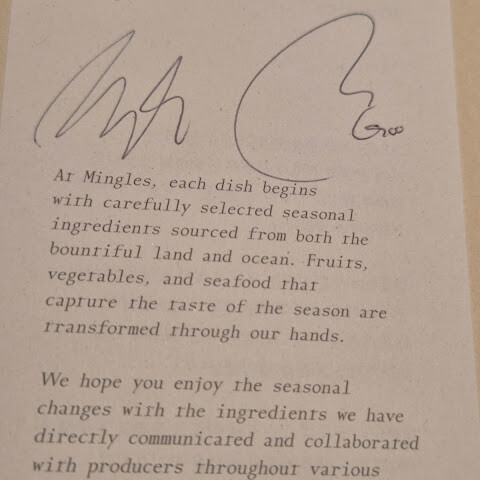 Goo
At Mingles, each dish begins
with carefully selected seasonal
ingredients sourced from both the
bountiful land and ocean. Fruits,
vegetables, and seafood that
capture the taste of the season are
transformed through our hands.
We hope you enjoy the seasonal
changes with the ingredients we have
directly communicated and collaborated
with producers throughout various